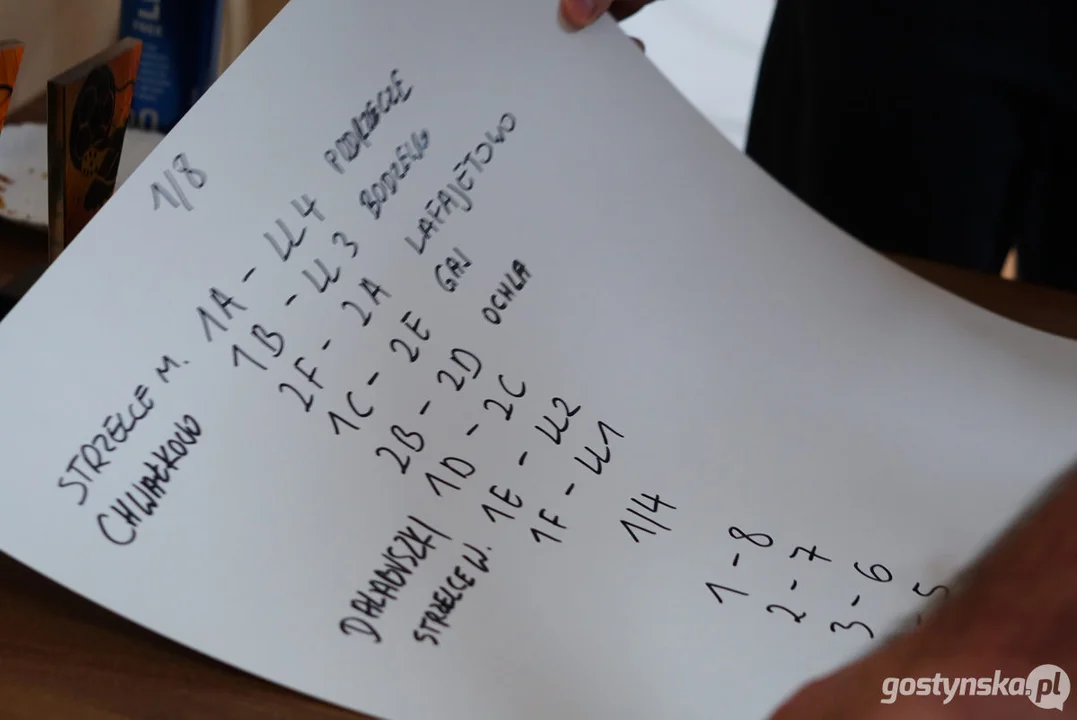 1/8
STRZELCE M. 1A - LL4 PODRZECZE
CHWAŁKOWO 1B - LL3 BODZEWO
2F - 2A LAFAJETOWO
1C - 2E GAJ
2B - 2D OCHLA
DALABUSZKI 1D - 2C
STRZELCE W. 1E - LL2
1F - LL1
1/4
1 - 8
2 - 7
3 - 6
- 5
gostynska.pl